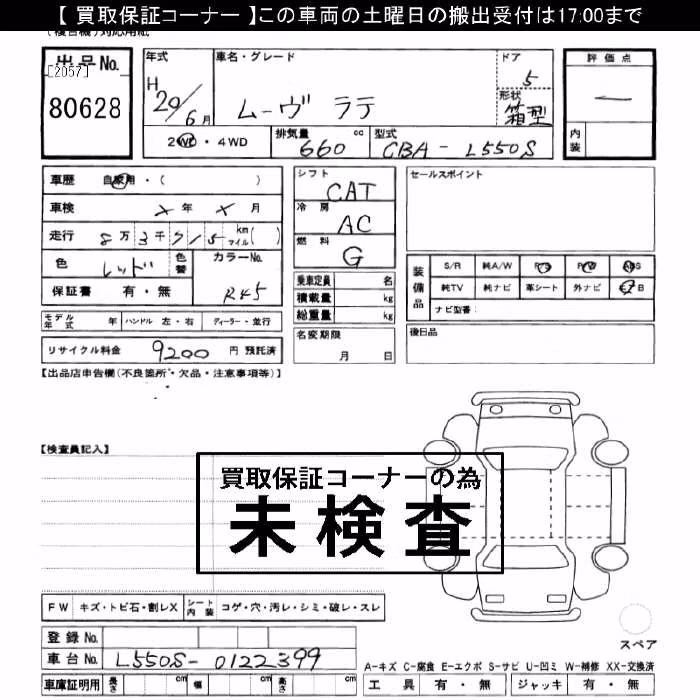 【 買取保証コーナー 】この車両の土曜日の搬出受付は17:00まで
(複合機)対応用紙
出品No.
[2057]
80628
年式
H 20/6月
車名・グレード
ムーヴ ラテ
ドア
5
形状
箱型
評価点
一
内装
2WD・4WD
排気量 cc
660
型式
CBA - L550S
車歴 自家用・( )
車検 × 年 × 月
走行 8万3千715 km マイル( )
色 レッド
色替
カラーNo.
R45
保証書 有・無
シフト
CAT
冷房
AC
燃料
G
乗車定員 名
積載量 kg
総重量 kg
セールスポイント
装備品
S/R 純A/W P/S P/W ABS
純TV 純ナビ 革シート 外ナビ B
ナビ型番:
モデル年式 年 ハンドル 左・右 ディーラー・並行
リサイクル料金 9200 円 預託済
名変期限
月 日
後日品
【出品店申告欄(不良箇所・欠品・注意事項等)】
【検査員記入】
買取保証コーナーの為
未検査
FW キズ・トビ石・割レX シート内装 コゲ・穴・汚レ・シミ・破レ・スレ
登録No.
車台No. L550S-0122399
車庫証明用 長さ cm 幅 cm 高さ cm
スペア
A-キズ C-腐食 E-エクボ S-サビ U-凹ミ W-補修 XX-交換済
工具 有・無 ジャッキ 有・無